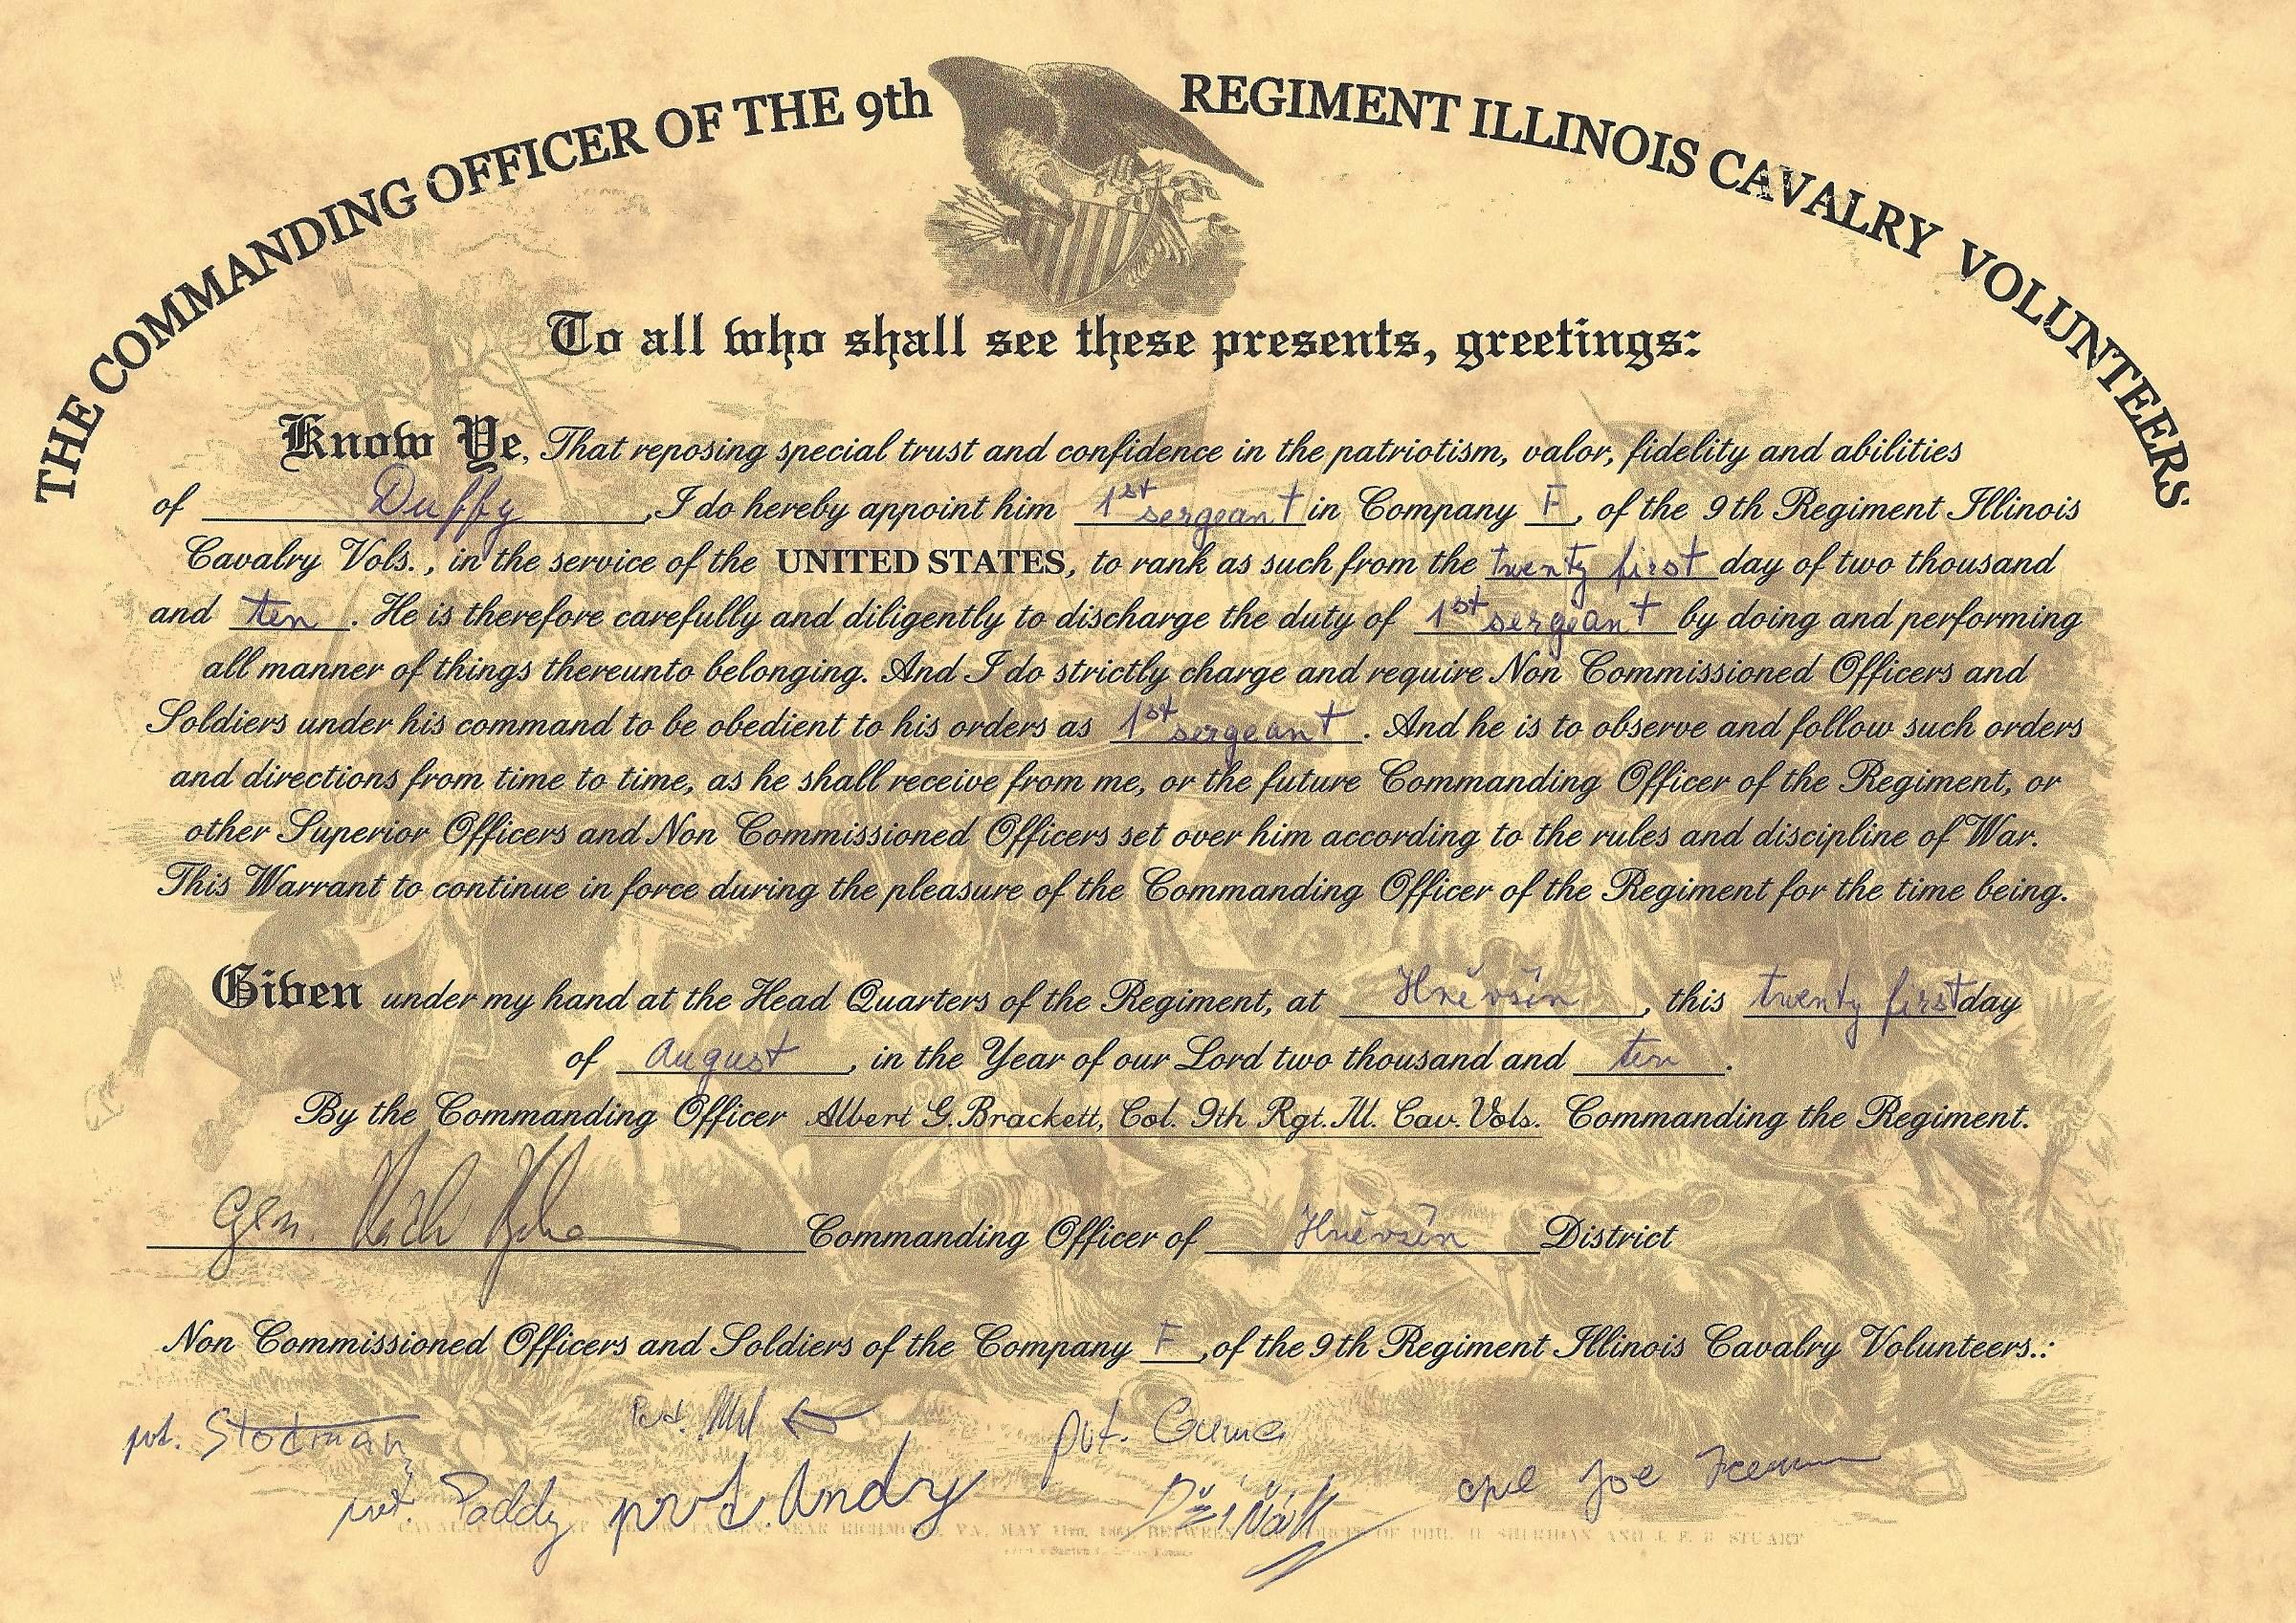 THE COMMANDING OFFICER OF THE 9th REGIMENT ILLINOIS CAVALRY VOLUNTEERS
To all who shall see these presents, greetings:
Know Ye, That reposing special trust and confidence in the patriotism, valor, fidelity and abilities
of Duffy, I do hereby appoint him 1st sergeant in Company F, of the 9th Regiment Illinois
Cavalry Vols., in the service of the UNITED STATES, to rank as such from the twenty first day of two thousand
and ten. He is therefore carefully and diligently to discharge the duty of 1st sergeant by doing and performing
all manner of things thereunto belonging. And I do strictly charge and require Non Commissioned Officers and
Soldiers under his command to be obedient to his orders as 1st sergeant. And he is to observe and follow such orders
and directions from time to time, as he shall receive from me, or the future Commanding Officer of the Regiment, or
other Superior Officers and Non Commissioned Officers set over him according to the rules and discipline of War.
This Warrant to continue in force during the pleasure of the Commanding Officer of the Regiment for the time being.
Given under my hand at the Head Quarters of the Regiment, at Hněvšín, this twenty first day
of august, in the Year of our Lord two thousand and ten.
By the Commanding Officer Albert G. Brackett, Col. 9th Rgt. Ill. Cav. Vols. Commanding the Regiment.
Gen. Commanding Officer of Hněvšín District
Non Commissioned Officers and Soldiers of the Company F, of the 9th Regiment Illinois Cavalry Volunteers.:
pvt. pvt.
pvt. Paddy pvt. Andy cpl Joe
NEAR RICHMOND, VA. MAY 11th, BETWEEN OF PHIL. H. SHERIDAN AND J. E. B. STUART